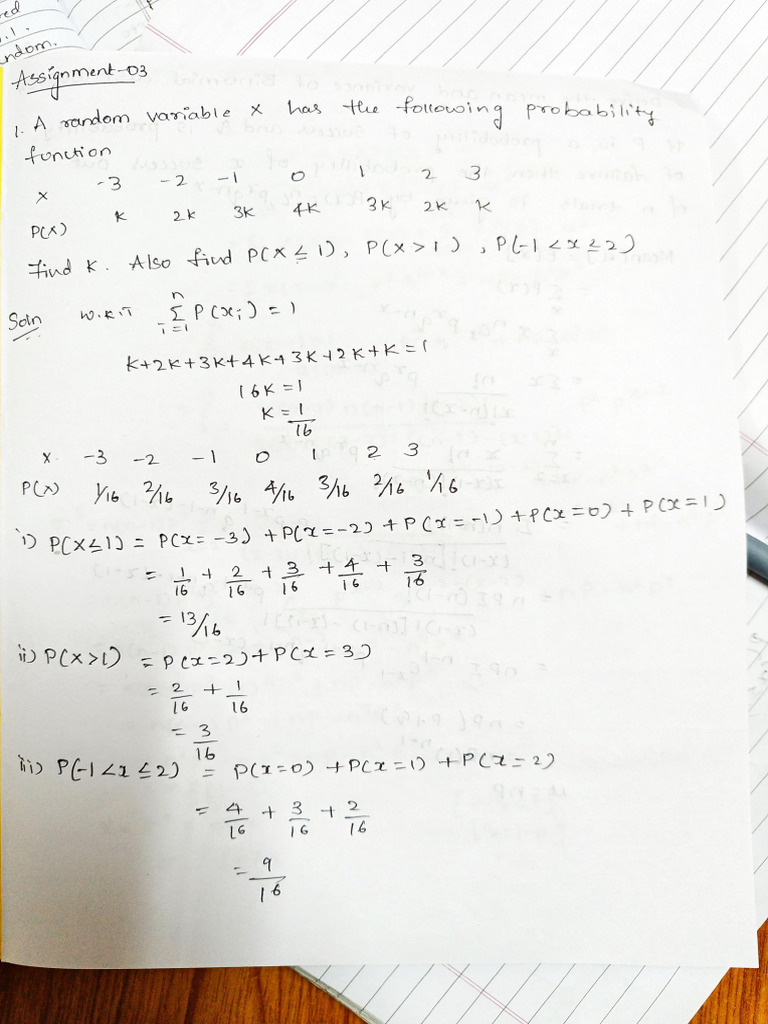 red
.1.
ndom.
Assignment-03
1. A random variable X has the following probability
function
X -3 -2 -1 0 1 2 3
P(X) K 2K 3K 4K 3K 2K K
Find K. Also find P(X ≤ 1), P(X > 1), P(-1 < x ≤ 2)
Soln W.K.T ∑_{i=1}^{n} P(xi) = 1
K+2K+3K+4K+3K+2K+K=1
16K = 1
K = 1/16
X. -3 -2 -1 0 1 2 3
P(X) 1/16 2/16 3/16 4/16 3/16 2/16 1/16
i) P(X≤1) = P(x=-3) + P(x=-2) + P(x=-1) + P(x=0) + P(x=1)
= 1/16 + 2/16 + 3/16 + 4/16 + 3/16
= 13/16
ii) P(X>1) = P(x=2) + P(x=3)
= 2/16 + 1/16
= 3/16
iii) P(-1<x≤2) = P(x=0) + P(x=1) + P(x=2)
= 4/16 + 3/16 + 2/16
= 9/16